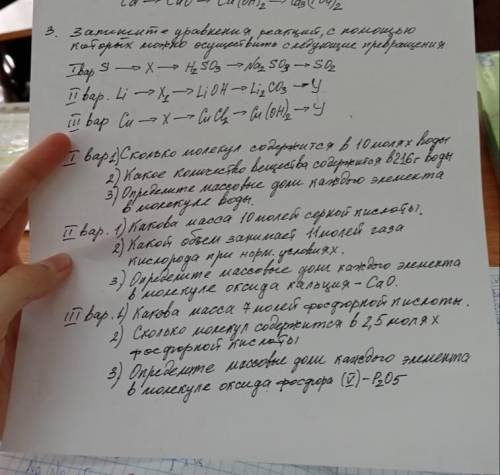 Ca → CaO → Ca(OH)₂ → Ca₃(PO₄)₂
3. Запишите уравнения реакций, с помощью
которых можно осуществить следующие превращения
I вар S → X → H₂SO₃ → Na₂SO₃ → SO₂
II вар. Li → X₁ → LiOH → Li₂CO₃ → У
III вар Cu → X → CuCl₂ → Cu(OH)₂ → У
I вар 1) Сколько молекул содержится в 10 молях воды
2) Какое количество вещества содержится в 216 г воды
3) Определите массовые доли каждого элемента
в молекуле воды.
II вар. 1) Какова масса 10 молей серной кислоты.
2) Какой объем занимает 11 молей газа
кислорода при норм. условиях.
3) Определите массовые доли каждого элемента
в молекуле оксида кальция - CaO.
III вар. 1) Какова масса 7 молей фосфорной кислоты.
2) Сколько молекул содержится в 2,5 молях
фосфорной кислоты
3) Определите массовые доли каждого элемента
в молекуле оксида фосфора (V) - P₂O5